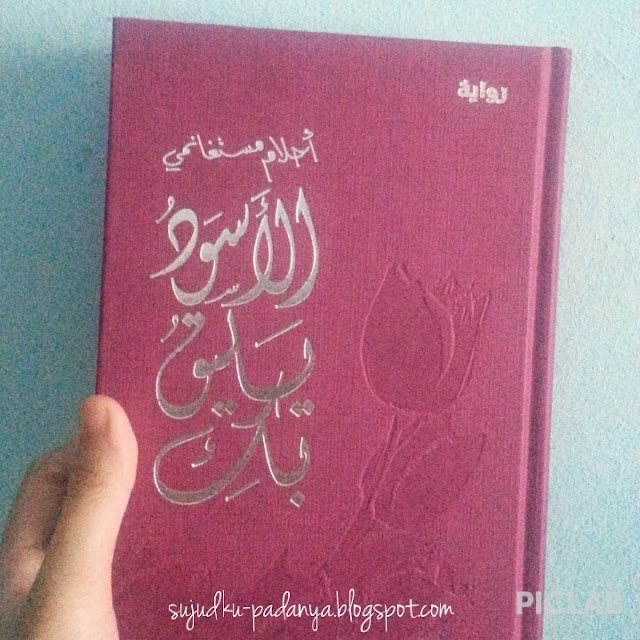 رواية
أحلام مستغانمي
الأَسوَدُ
يَليقُ
بِكِ
sujudku-padanya.blogspot.com
PICLAB